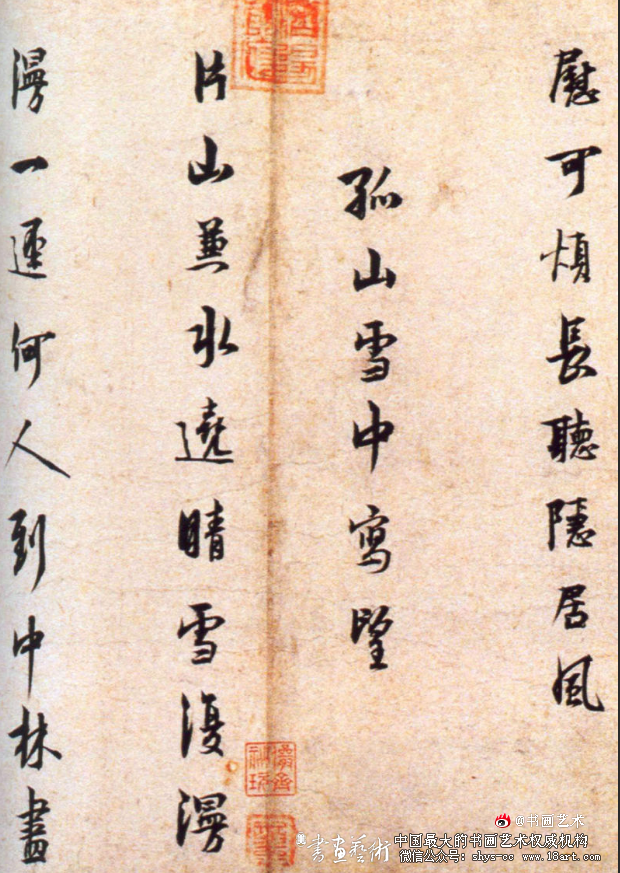 慰可煩長聽隱居風
孤山雪中寫望
片山兼水遶晴雪復漫
漫一逕何人到中林盡
@书画艺术
書畫藝術
中国最大的书画艺术权威机构
微信公众号：shys-cc www.18art.com